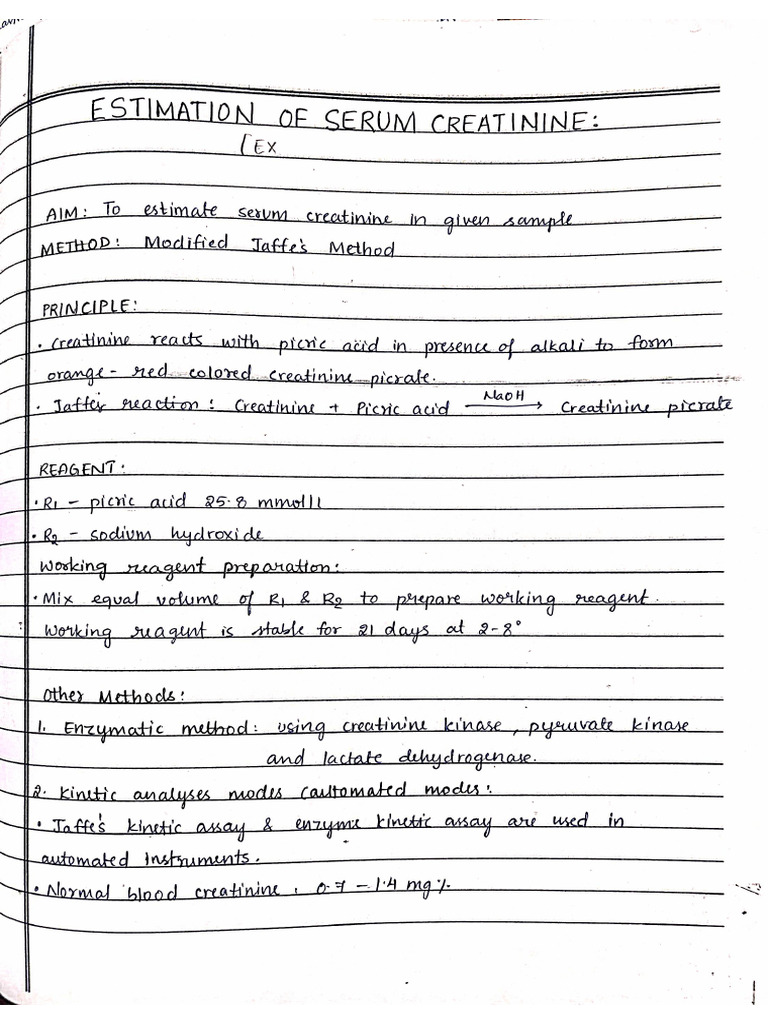 ESTIMATION OF SERUM CREATININE:
[EX
AIM: To estimate serum creatinine in given sample
METHOD: Modified Jaffe's Method
PRINCIPLE:
• Creatinine reacts with picric acid in presence of alkali to form
orange - red colored creatinine picrate.
• Jaffe's reaction: Creatinine + Picric acid NaOH → Creatinine picrate
REAGENT:
• R1 - picric acid 25.8 mmol/l
• R2 - sodium hydroxide
Working reagent preparation:
• Mix equal volume of R1 & R2 to prepare working reagent.
Working reagent is stable for 21 days at 2-8°
Other Methods:
1. Enzymatic method: using creatinine kinase, pyruvate kinase
and lactate dehydrogenase.
2. Kinetic analyses modes (automated modes:
• Jaffe's kinetic assay & enzyme kinetic assay are used in
automated instruments.
• Normal blood creatinine: 0.7 - 1.4 mg%